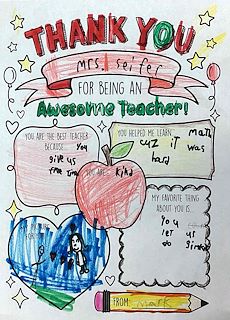 THANK YOU
mrs. seifer
FOR BEING AN
Awesome Teacher!
YOU ARE THE BEST TEACHER
BECAUSE... you
give us
free time
YOU HELPED ME LEARN... math
cuz it was
hard
YOU ARE... kind
MY FAVORITE THING
ABOUT YOU IS...
you
let us
do
FROM: mark